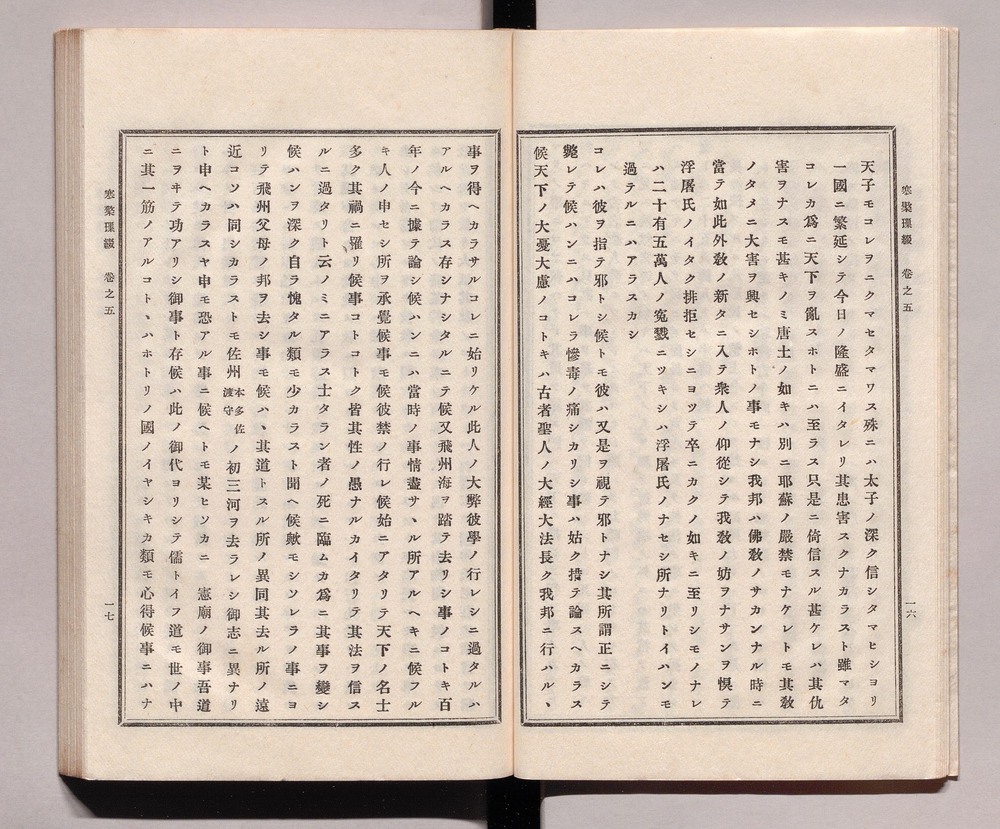 寒檠璅綴 卷之五
一六
天子モコレヲニクマセタマワス殊ニハ太子ノ深ク信シタマヒシヨリ
一國ニ繁延シテ今日ノ隆盛ニイタレリ其患害スクナカラスト雖マタ
コレカ爲ニ天下ヲ亂スホトニハ至ラス只是ニ倚信スル甚ケレハ其仇
害ヲナスモ甚キノミ唐土ノ如キハ別ニ耶蘇ノ嚴禁モナケレトモ其敎
ノタメニ大害ヲ興セシホトノ事モナシ我邦ハ佛敎ノサカンナル時ニ
當テ如此外敎ノ新タニ入テ衆人ノ仰從シテ我敎ノ妨ヲナサンヲ惧テ
浮屠氏ノイタク排拒セシニヨツテ卒ニカクノ如キニ至リシモノナレ
ハ二十有五萬人ノ寃戮ニツキシハ浮屠氏ノナセシ所ナリトイハンモ
過テルニハアラスカシ
コレハ彼ヲ指テ邪トシ候トモ彼ハ又是ヲ視テ邪トナシ其所謂正ニシテ
斃レテ候ハンニハコレラ慘毒ノ痛シカリシ事ハ姑ク措テ論スヘカラス
候天下ノ大憂大慮ノコトキハ古者聖人ノ大經大法長ク我邦ニ行ハルヽ
事ヲ得ヘカラサルコレニ始リケル此人ノ大弊彼學ノ行レシニ過タルハ
アルヘカラス存シナシタルニテ候又飛州海ヲ踏テ去リシ事ノコトキ百
年ノ今ニ據テ論シ候ハンニハ當時ノ事情盡サヽル所アルヘキニ候フル
キ人ノ申セシ所ヲ承覺候事モ候彼禁ノ行レ候始ニアタリテ天下ノ名士
多ク其禍ニ罹リ候事コトコトク皆其性ノ愚ナルカイタリテ其法ヲ信ス
ルニ過タリト云ノミニアラス士タラン者ノ死ニ臨ムカ爲ニ其事ヲ變シ
候ハンヲ深ク自ラ愧タル類モ少カラスト聞ヘ候歟モシソレラノ事ニヨ
リテ飛州父母ノ邦ヲ去シ事モ候ハヽ其道トスル所ノ異同其去ル所ノ遠
近コソハ同シカラストモ佐州本多佐渡守ノ初三河ヲ去ラレシ御志ニ異ナリ
ト申ヘカラスヤ申モ恐アル事ニ候ヘトモ某ヒソカニ 憲廟ノ御事吾道
ニヲヰテ功アリシ御事ト存候ハ此ノ御代ヨリシテ儒トイフ道モ世ノ中
ニ其一筋ノアルコトヽハホトリノ國ノイヤシキカ類モ心得候事ニハナ
寒檠璅綴 卷之五
一七